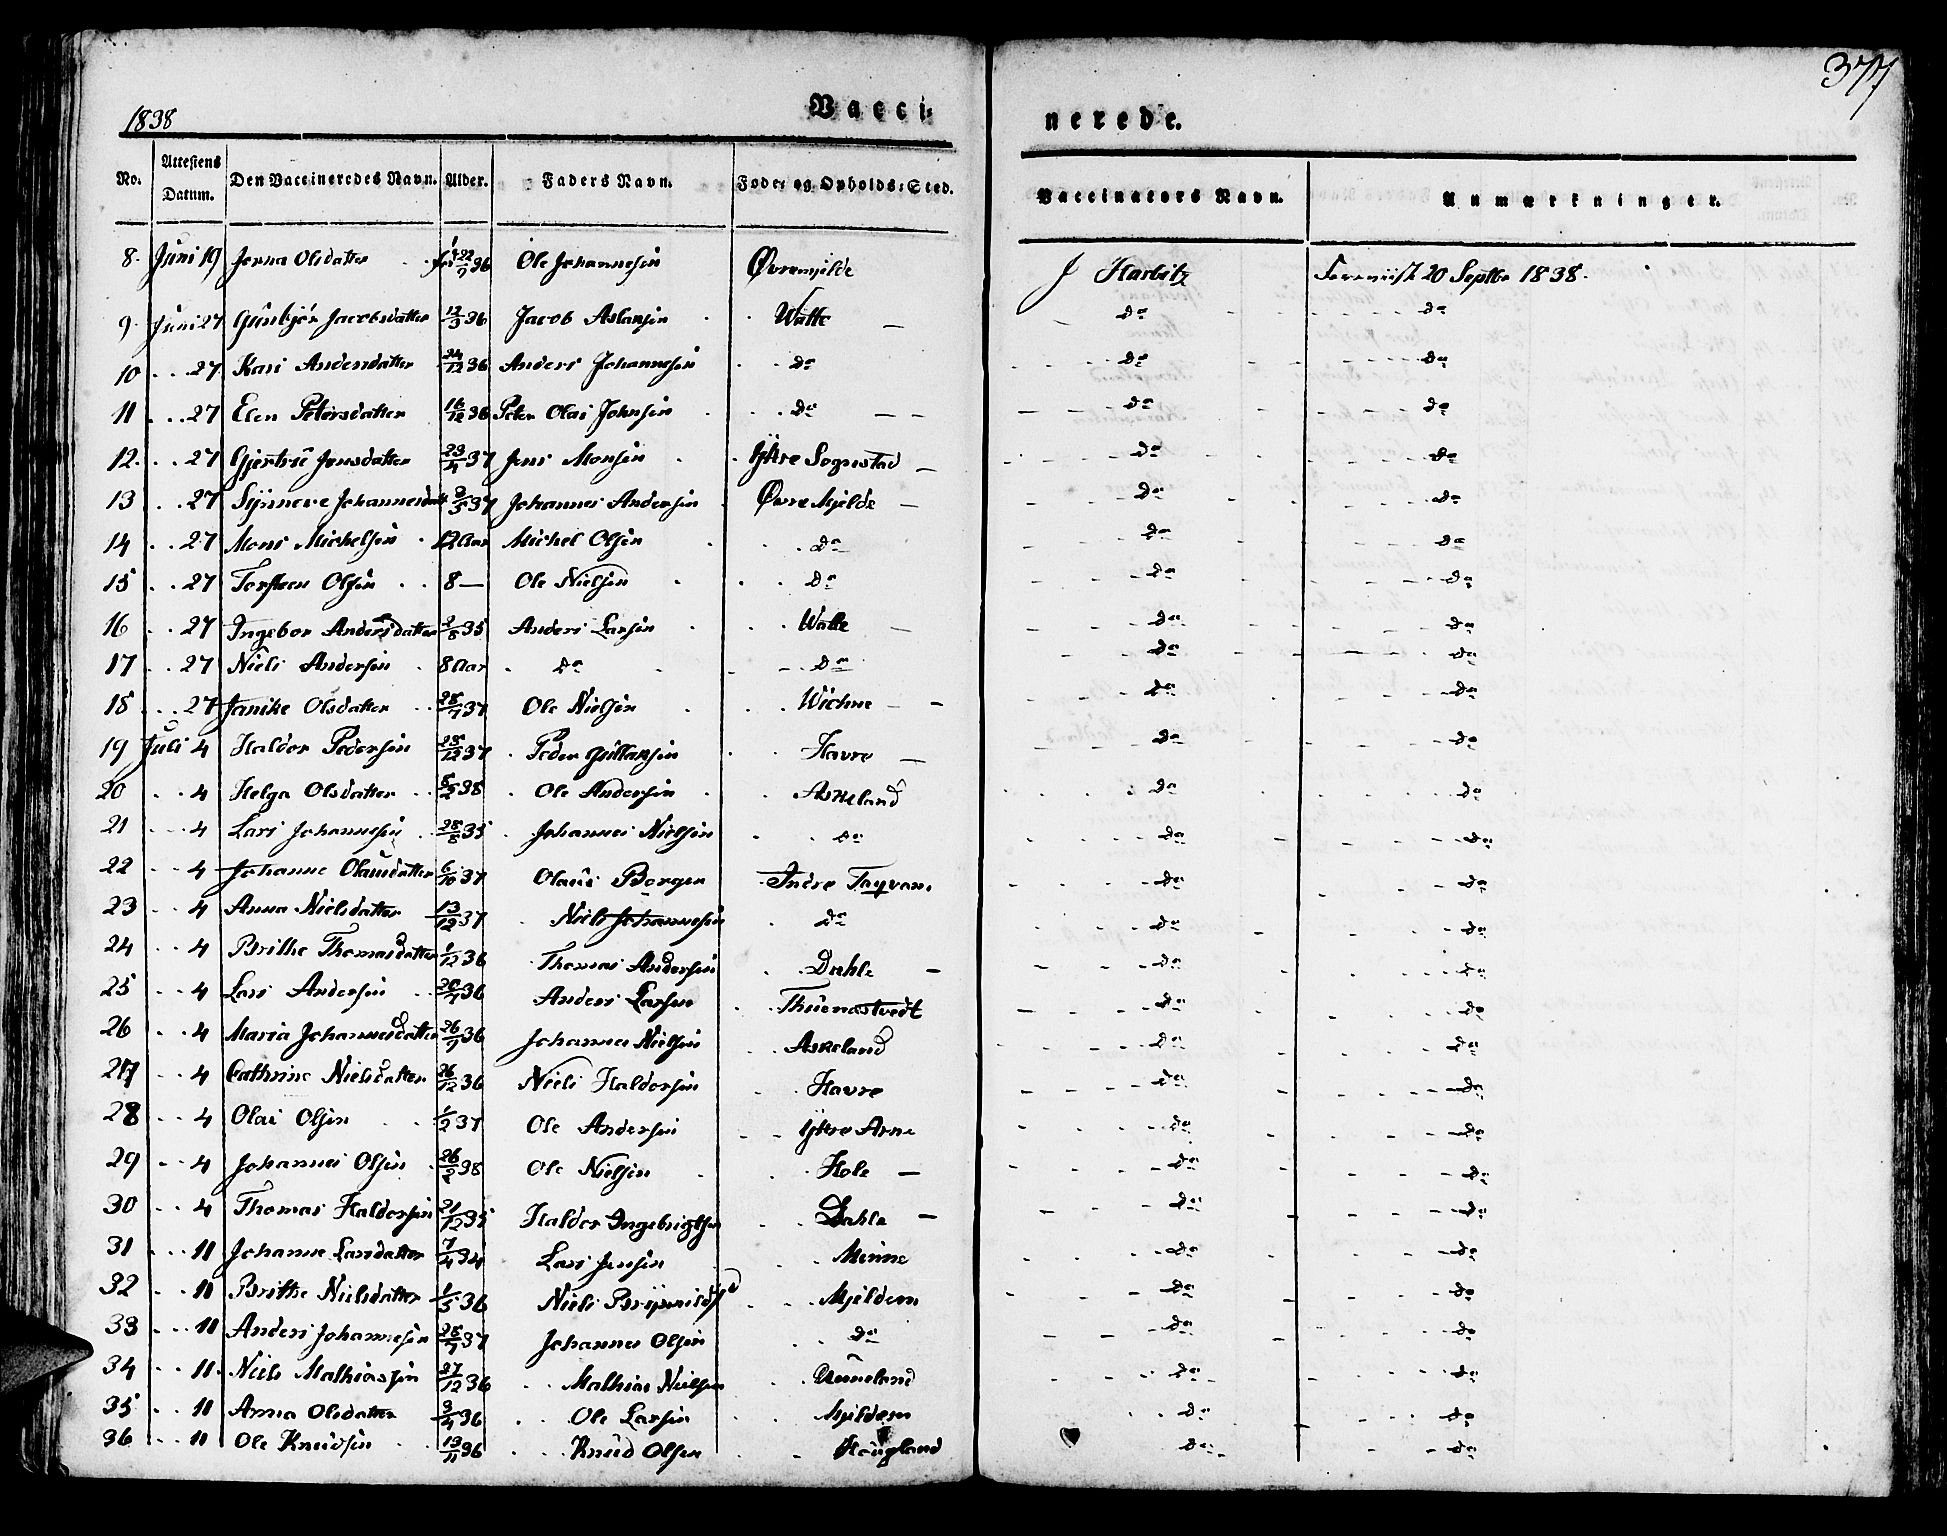 377
1838 Vacci- nerede.
No. Attestens Datum. Den Vaccineredes Navn. Alder. Faders Navn. Føde- og Opholds-Sted. Vaccinators Navn. Anmærkninger.
8. Juni 19 Olsdatter 36 Ole Johannesen Øvremjelde J Harbitz 20 Septbr 1838.
9. Juni 27 Gunbjør Jacobsdatter 12/3 36 Jacob Aslaksen Watle do do
10 27 Kari Andersdatter 24/12 36 Anders Johannesen do do do
11 27 Elen Petersdatter 16/12 36 Peter Olai Johnsen do do do
12. 27 Gjertrü Jensdatter 23/4 37 Jens Monsen Ytre Sognstad do do
13 27 Synneve Johannesdatt 2/3 37 Johannes Andersen Øvre Mjelde do do
14 27 Mons Michelsen 12 Aar Michel Olsen do do do
15 27 Torsteen Olsen 8 — Ole Nielsen do do do
16 27 Ingebor Andersdatter 2/8 35 Anders Larsen Watle do do
17 27 Niels Andersen 8 Aar do do do do
18 27 Janike Olsdatter 28/7 37 Ole Nielsen Wichne do do
19 Juli 4 Haldor Pedersen 28/12 37 Peder Gullaksen Havre do do
20 4 Helga Olsdatter 8/2 38 Ole Andersen Askeland do do
21 4 Lars Johannesen 28/8 35 Johannes Nielsen do do do
22 4 Johanne Olausdatter 6/10 37 Olaus Borgen Indre do do
23 4 Anna Nielsdatter 13/12 37 Niels Johannesen do do do
24 4 Brithe Thomasdatter 1/12 36 Thomas Andersen Dahle do do
25 4 Lars Andersen 20/7 36 Anders Larsen Thuenastvedt do do
26 4 Maria Johannesdatter 26/7 36 Johannes Nielsen Askeland do do
27 4 Cathrine Nielsdatter 26/12 36 Niels Haldorsen Havre do do
28 4 Olai Olsen 1/2 37 Ole Andersen Ytre Arne do do
29 4 Johannes Olsen 26/2 38 Ole Nielsen Hole do do
30 4 Thomas Haldorsen 21/12 35 Haldor Ingebrigtsen Dahle do do
31 11 Johanne Larsdatter 7/4 34 Lars Jensen Minne do do
32 11 Brithe Nielsdatter 1/3 36 Niels Brynnilds Mjeldem do do
33 11 Anders Johannesen 28/7 37 Johannes Olsen do do do
34 11 Niels Mathiassen 27/12 36 Mathias Nielsen Unneland do do
35 11 Anna Olsdatter 3/4 36 Ole Larsen Mjeldem do do
36 11 Ole Knudsen 13/11 36 Knud Olsen Hougland do do